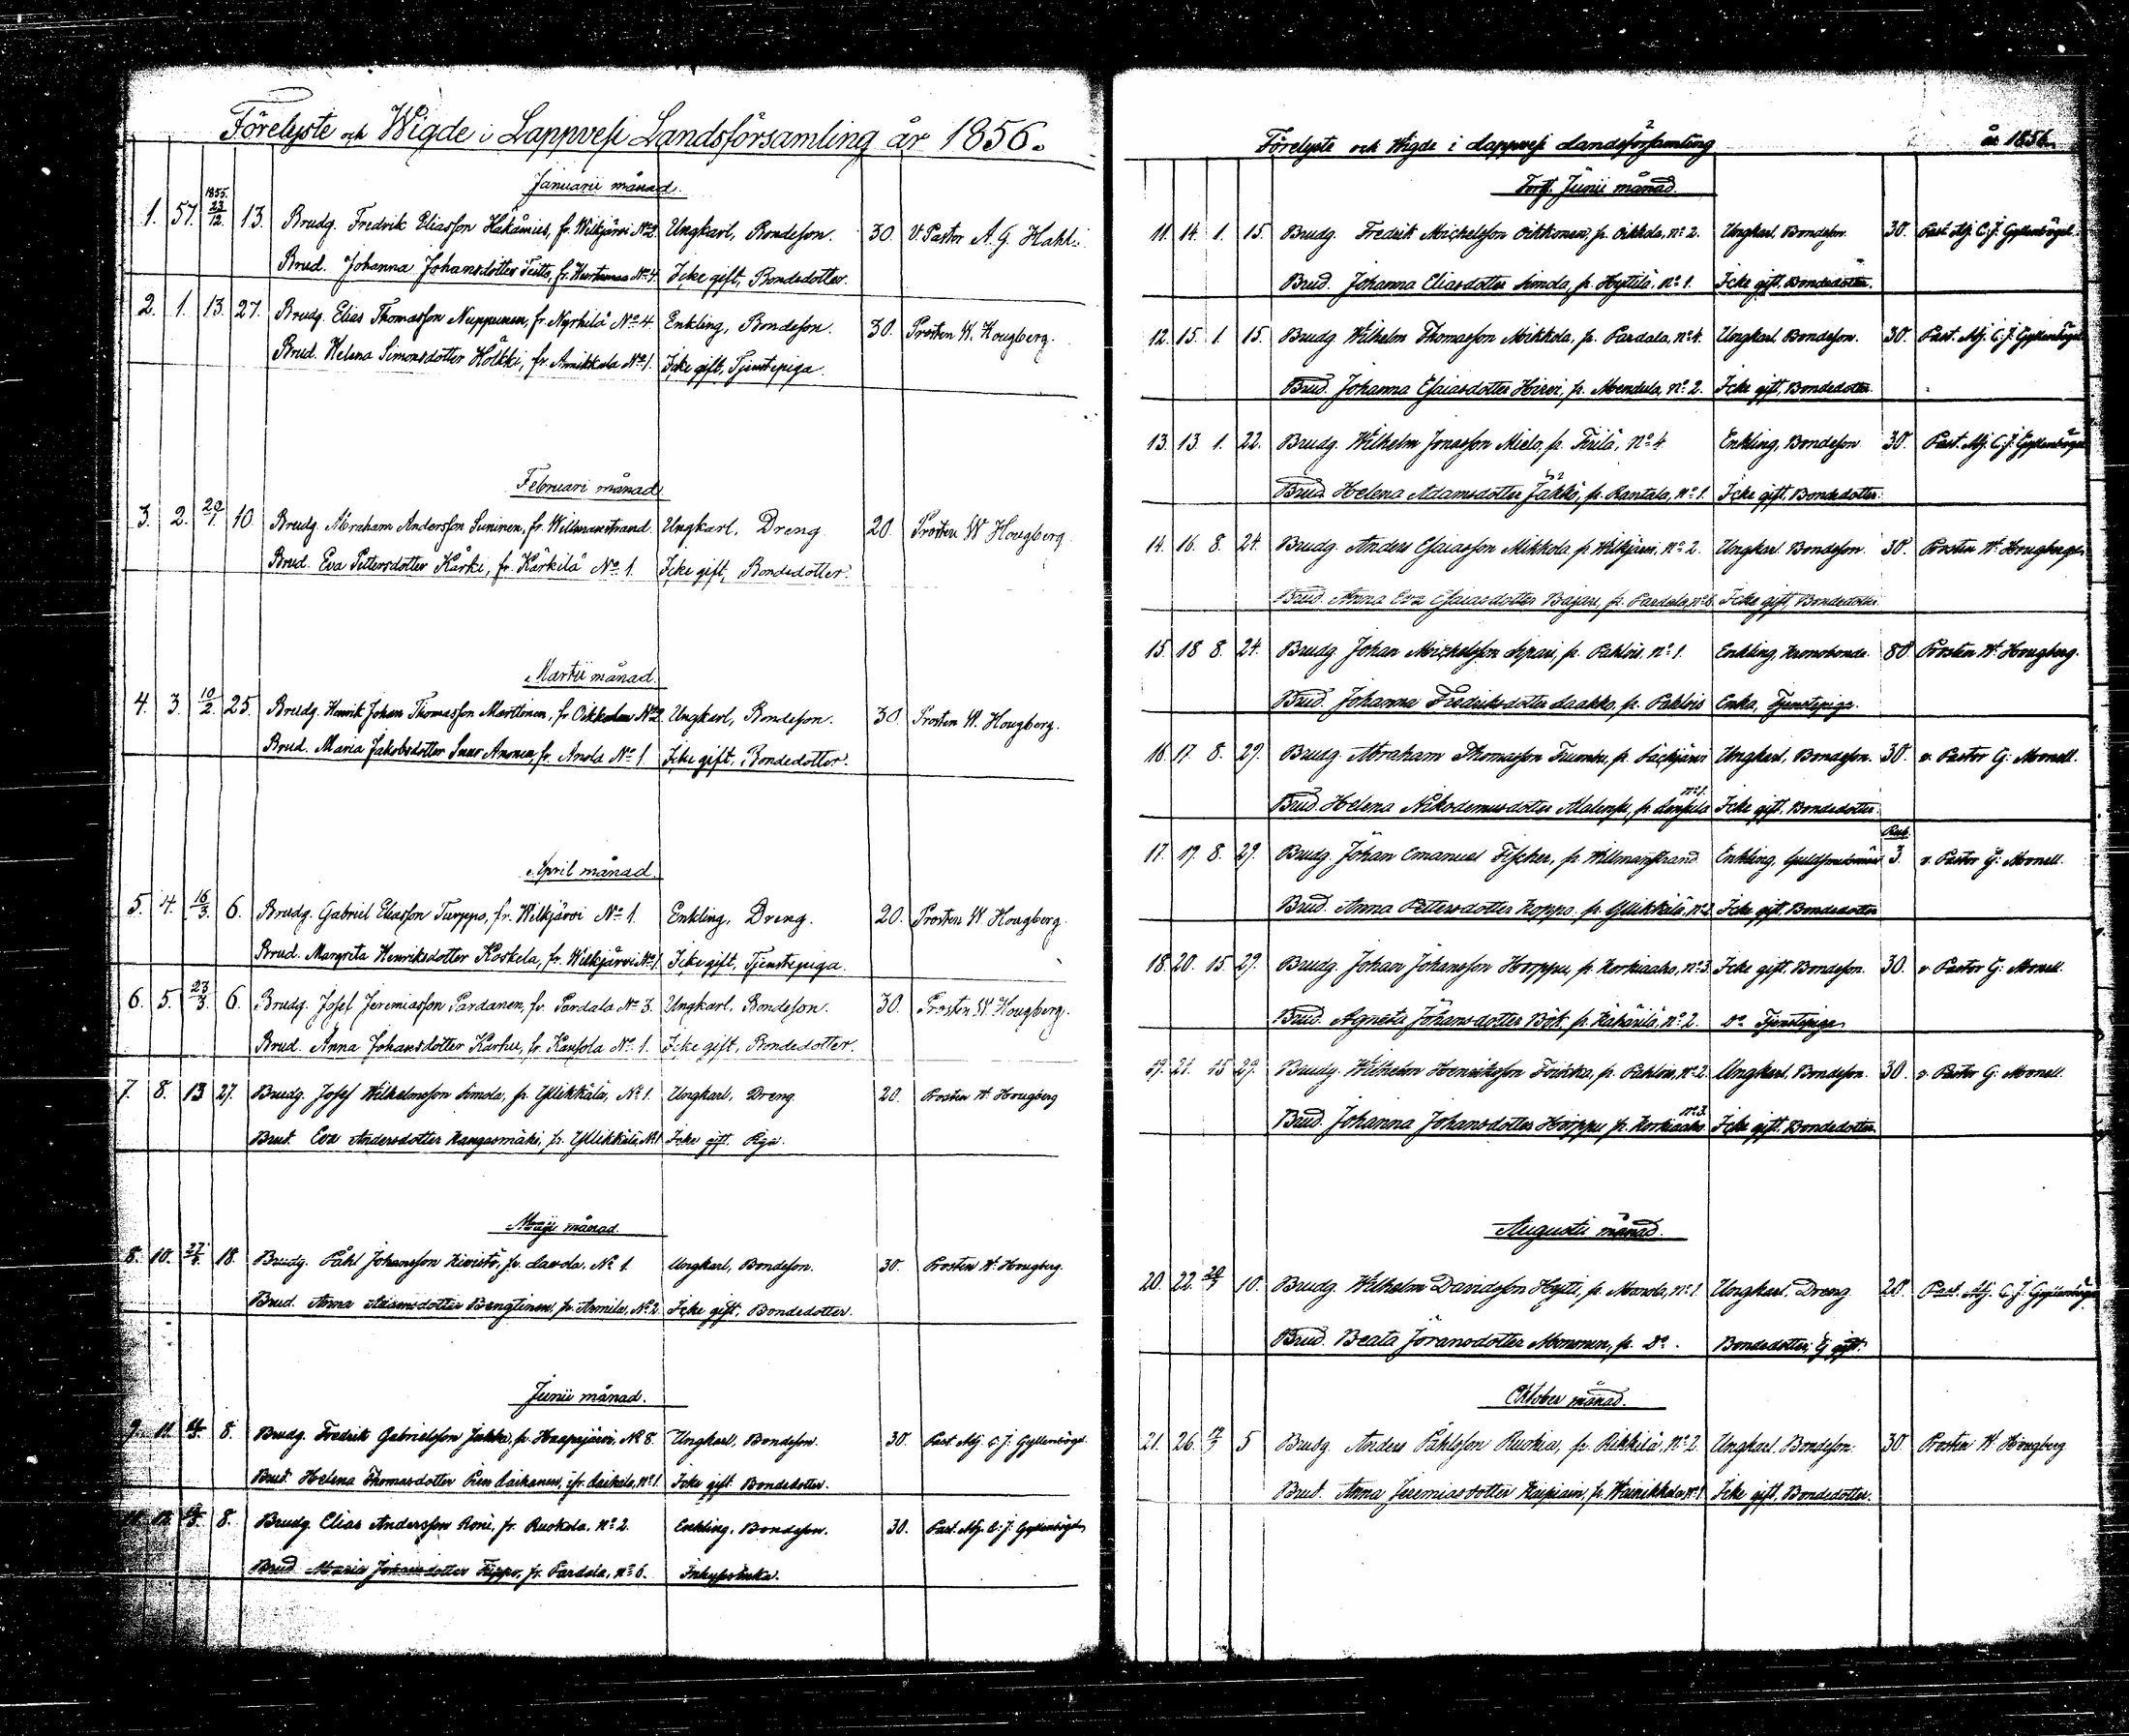 Förelyste och Wigde i Lappvesi Landsförsamling år 1856.
Januarii månad.
1. 57. 1855. 23/12. 13. Brudg. Fredrik Eliasson Hakämies, fr. Wilkjärvi No 2. Ungkarl, Bondeson. 30. V. Pastor A. G. Hahl.
Brud. Johanna Johansdotter Teitto, fr. No 4. Icke gift, Bondedotter.
2. 1. 13. 27. Brudg. Elias Thomasson Nuppunen, fr. Nyrhilä No 4. Enkling, Bondeson. 30. Prosten W. Hougberg.
Brud. Helena Simonsdotter Hölkki, fr. Armikkala No 1. Icke gift, Tjenstepiga.
Februari månad
3. 2. 20/1. 10. Brudg. Abraham Andersson Suninen, fr. Willmanstrand. Ungkarl, Dreng 20. Prosten W Hougberg.
Brud. Eva Pettersdotter Kärki, fr. Kärkilä No 1. Icke gift, Bondedotter.
Martii månad.
4. 3. 10/2. 25. Brudg. Henrik Johan Thomasson Marttinen, fr. No 2. Ungkarl, Bondeson. 30. Prosten W. Hougberg.
Brud. Maria Jakobsdotter Suur Anonen, fr. Anola No 1. Icke gift, Bondedotter.
April månad.
5. 4. 16/3. 6. Brudg. Gabriel Eliasson Turppo, fr. Wilkjärvi No 1. Enkling, Dreng. 20. Prosten W Hougberg.
Brud. Margreta Henriksdotter Koskela, fr. Wilkjärvi No 1. Icke gift, Tjenstepiga.
6. 5. 23/3. 6. Brudg. Josef Jeremiasson Pardanen, fr. Pardala No 3. Ungkarl, Bondeson. 30. Prosten W Hougberg.
Brud. Anna Johansdotter Karhu, fr. Kansola No 1. Icke gift, Bondedotter.
7. 8. 13 27. Brudg. Josef Wilhelmsson Simola, fr. Yllikkälä, No 1. Ungkarl, Dreng. 20. Prosten W. Hougberg
Brud. Eva Andersdotter Kangasmäki, fr. Yllikkälä, No 1 Icke gift. Piga.
Maji månad.
8. 10. 27/4. 18. Brudg. Påhl Johansson Kivistö, fr. Lavola, No 1. Ungkarl, Bondeson. 30. Prosten W. Hougberg.
Brud. Anna Bengtinen, fr. Armila, No 2. Icke gift, Bondedotter.
Junii månad.
9. 11. 8. Brudg. Fredrik Gabrielsson Jakko, fr. Haapajärvi, No 8. Ungkarl, Bondeson. 30. Past. Adj. C. J. Gyllenbögel.
Brud. Helena Thomasdotter Pien Laikanen, ifr. Laikala, No 1. Icke gift. Bondedotter.
12. 8. Brudg. Elias Andersson Roni, fr. Ruokola, No 2. Enkling, Bondeson. 30. Past. Adj. C. J. Gyllenbögel
Brud. Maria fr. Pardala, No 6. Inhysesenka.
Förelyste och Wigde i Lappvesi Landsförsamling år 1856.
Forts. Junii månad
11. 14. 1. 15. Brudg. Fredrik Michelsson Oikkonen, fr. Oikkola, No 2. Ungkarl Bondeson. 30. Past. Adj. C. J. Gyllenbögel.
Brud. Johanna Eliasdotter Simola, fr. Hyttilä, No 1. Icke gift, Bondedotter.
12. 15. 1. 15. Brudg. Wilhelm Thomasson Mikkola, fr. Pardala, No 4. Ungkarl, Bondeson. 30. Past. Adj. C. J. Gyllenbögel
Brud. Johanna Esaiasdotter Hirvi, fr. Mendula, No 2. Icke gift, Bondedotter.
13. 13. 1. 22. Brudg. Wilhelm Jonasson Mielo, fr. No 4 Enkling, Bondeson 30. Past. Adj. C. J. Gyllenbögel
Brud. Helena Adamsdotter Jakko, fr. Rantala, No 1. Icke gift. Bondedotter.
14. 16. 8. 24. Brudg. Anders Esaiasson Mikkola, fr. Wilkjärvi, No 2. Ungkarl Bondeson. 30. Prosten W. Hougberg.
Brud. Anna Eva Esaiasdotter Bajari, fr. Pardala, No 6. Icke gift, Bondedotter
15. 18 8. 24. Brudg. Johan Michelsson Sipari, fr. Pahlois, No 1. Enkling, Kronobonde. 80 Prosten W. Hougberg.
Brud. Johanna Fredriksdotter Laakko, fr. Pahlois Enka, Tjenstepiga.
16. 17. 8. 29. Brudg. Abraham Thomasson fr. Säckjärvi Ungkarl, Bondeson. 30. v. Pastor G. Monell.
Brud. Helena Nikodemusdotter fr. No 1. Icke gift, Bondedotter.
17. 19. 8. 29. Brudg. Johan Emanuel Fischer, fr. Willmanstrand. Enkling, Rub. 3. v. Pastor G. Monell.
Brud. Anna Pettersdotter Koppo, fr. Yllikkälä, No 2. Icke gift, Bondedotter
18. 20. 15. 29. Brudg. Johan Johansson Horppu, fr. Korkiaaho, No 3. Icke gift. Bondeson. 30. v. Pastor G. Monell.
Brud. Agneta Johansdotter Böök, fr. Kähärilä, No 2. Do Tjenstepiga
19. 21. 15 29. Brudg. Wilhelm Henriksson fr. Pahlois, No 2. Ungkarl, Bondeson. 30. v. Pastor G. Monell.
Brud. Johanna Johansdotter Horppu, fr. Korkiaaho No 3. Icke gift. Bondedotter.
Augusti månad.
20. 22. 20/7 10. Brudg. Wilhelm Davidsson Hyjti, fr. Monola, No 1. Ungkarl, Dreng 20. Past. Adj. C. J. Gyllenbögel
Brud. Beata Göransdotter Mononen, fr. Do. Bondedotter, Ej gift.
Oktober månad.
21. 26. 5 Brudg. Anders Påhlsson Ruokia, fr. Rikkilä, No 2. Ungkarl. Bondeson. 30. Prosten W. Hougberg
Brud. Anna Jeremiasdotter Kaipiain, fr. Wainikkala No 1 Icke gift, Bondedotter.